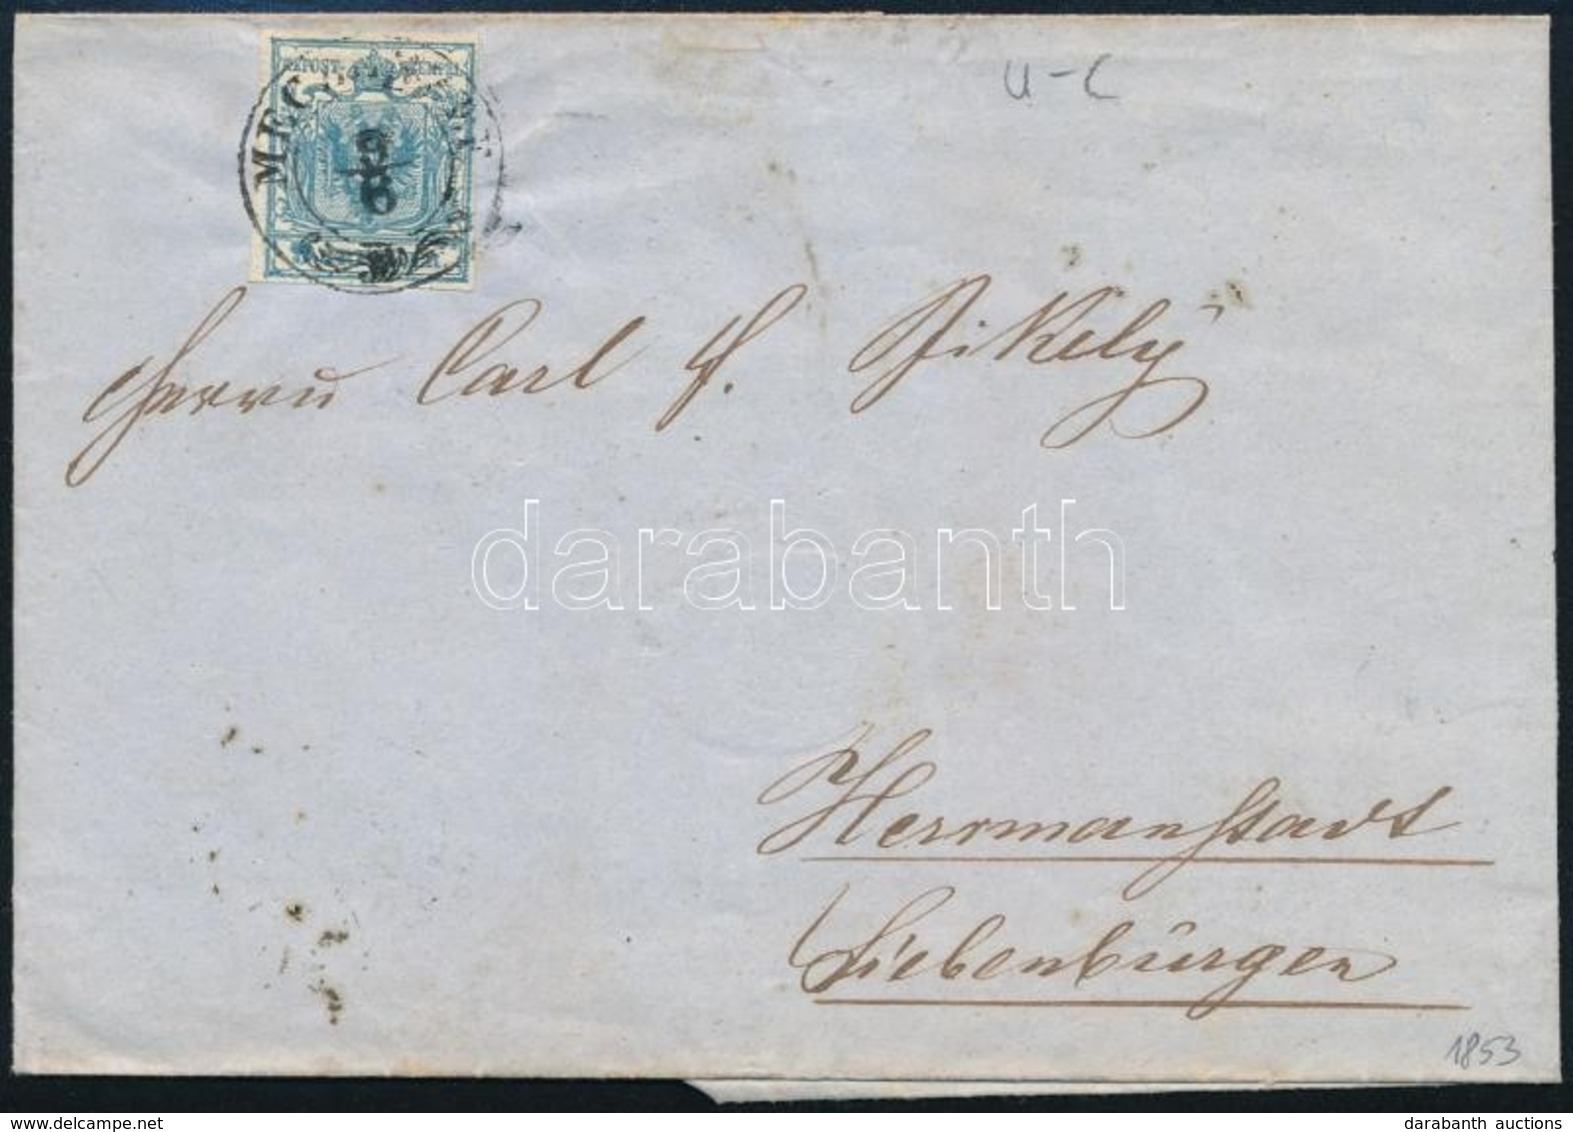 U-C
MEC
9/6
Herrn Carl F. Jikely
darabanth
Herrmanstadt
Siebenbürgen
1853
www.delcampe.net
darabanth auctions